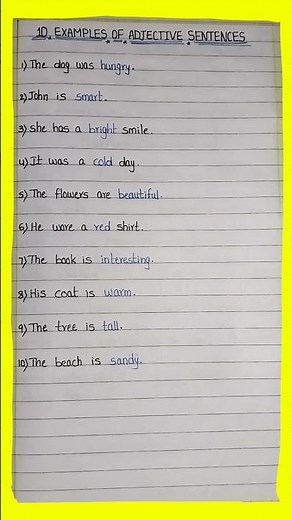 10 EXAMPLES OF ADJECTIVE SENTENCES
1) The dog was hungry.
2) John is smart.
3) she has a bright smile.
4) It was a cold day.
5) The flowers are beautiful.
6) He wore a red shirt.
7) The book is interesting.
8) His coat is warm.
9) The tree is tall.
10) The beach is sandy.